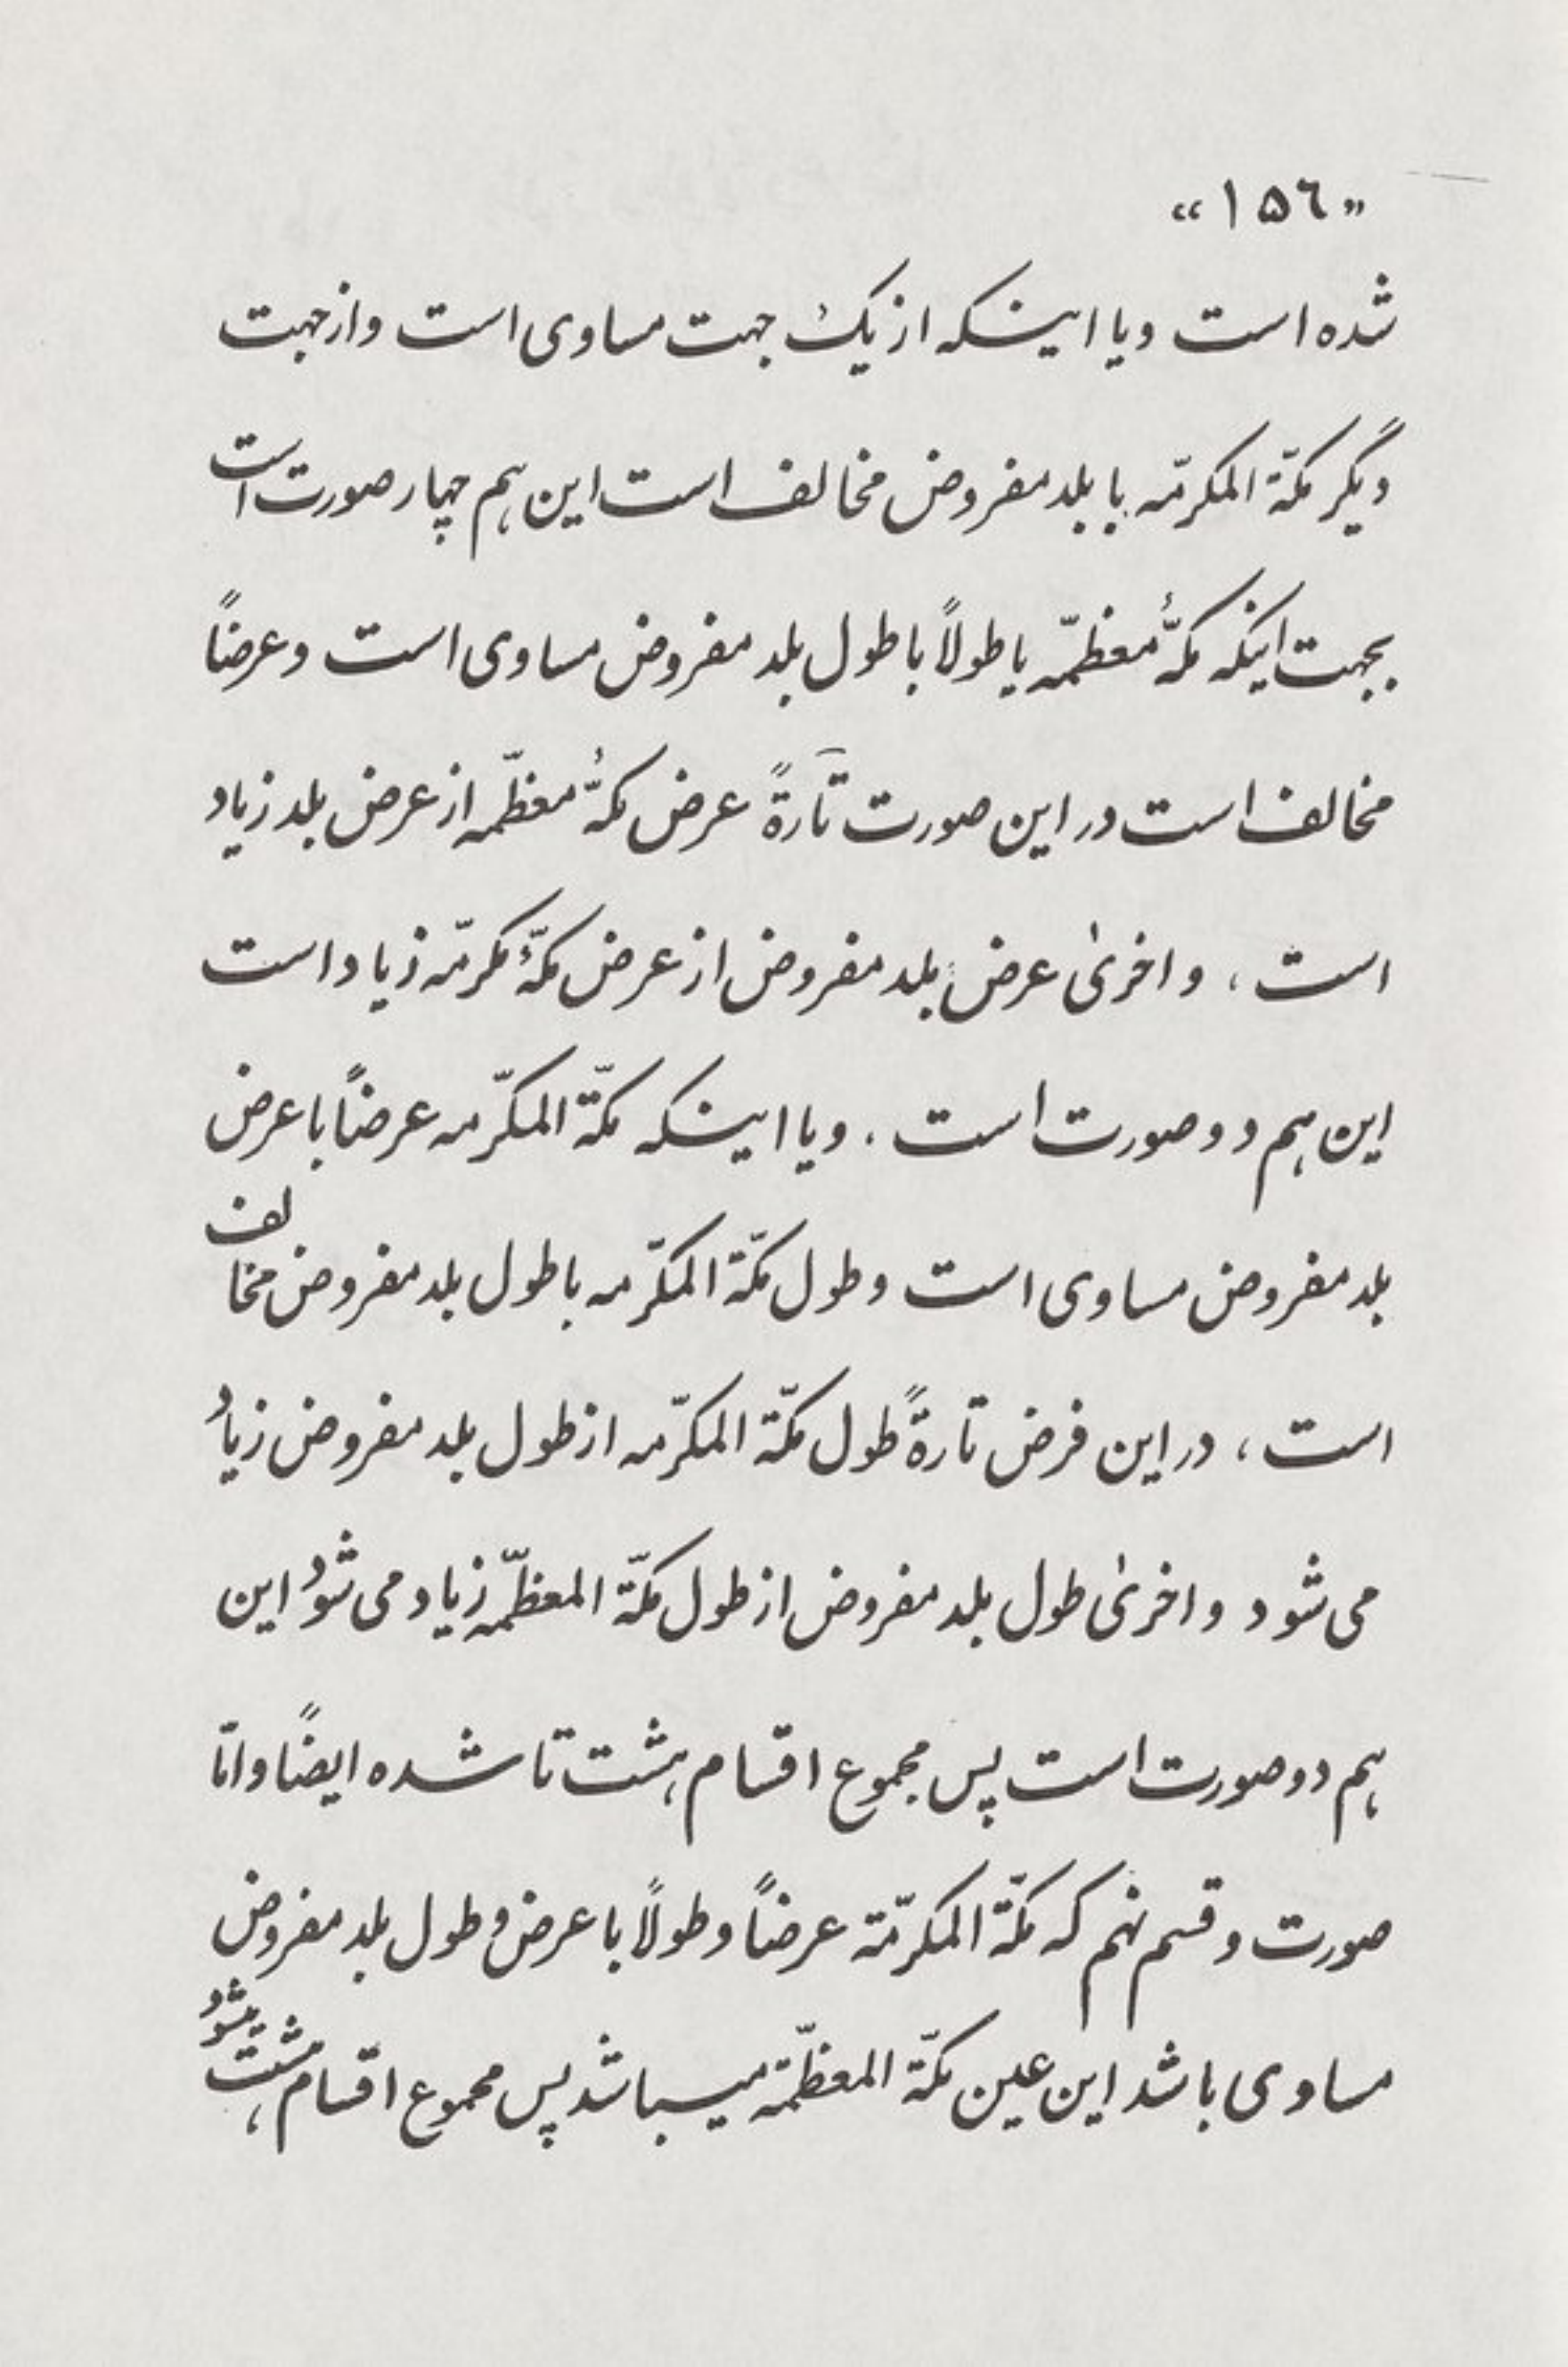 «۱۵۶»
شده است و یا اینکه از یک جهت مساوی است و از جهت
دیگر مکّة المکرمّه با بلد مفروض مخالف است این هم چهار صورت است
بجهت اینکه مکّهٔ معظمّه یا طولاً با طول بلد مفروض مساوی است و عرضاً
مخالف است در این صورت تارةً عرض مکّهٔ معظّمه از عرض بلد زیاد
است، و اخریٰ عرض بلد مفروض از عرض مکّهٔ مکرمّه زیاد است
این هم دو صورت است. و یا اینکه مکّة المکرّمه عرضاً با عرض
بلد مفروض مساوی است و طول مکّة المکرّمه با طول بلد مفروض مخالف
است، در این فرض تارةً طول مکّة المکرّمه از طول بلد مفروض زیاد
می شود و اخریٰ طول بلد مفروض از طول مکّة المعظّمه زیاد می شود این
هم دو صورت است پس مجموع اقسام هشت تا شده ایضاً و امّا
صورت و قسم نهم که مکّة المکرّمة عرضاً و طولاً با عرض و طول بلد مفروض
مساوی باشد این عین مکّة المعظّمة میباشد پس مجموع اقسام هشت میشود